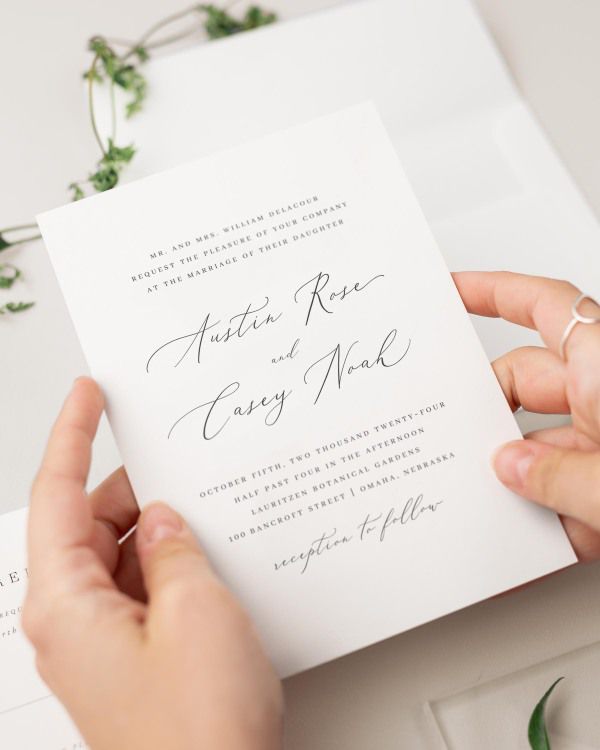 MR. AND MRS. WILLIAM DELACOUR
REQUEST THE PLEASURE OF YOUR COMPANY
AT THE MARRIAGE OF THEIR DAUGHTER
Austin Rose
and
Casey Noah
OCTOBER FIFTH, TWO THOUSAND TWENTY-FOUR
HALF PAST FOUR IN THE AFTERNOON
LAURITZEN BOTANICAL GARDENS
100 BANCROFT STREET | OMAHA, NEBRASKA
reception to follow